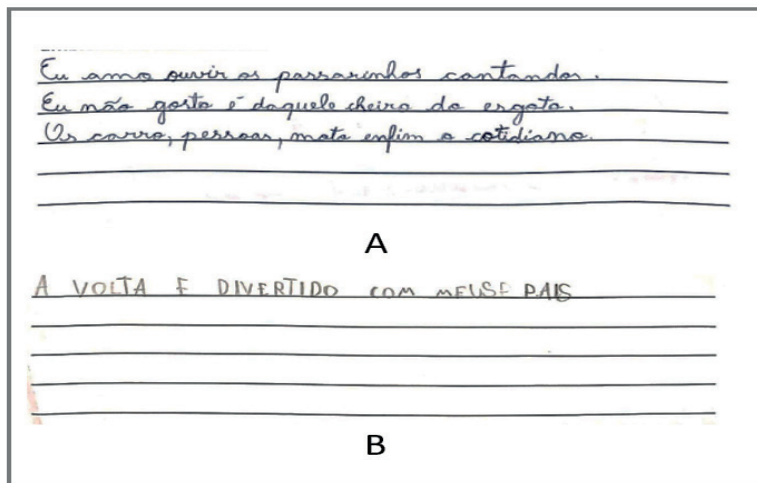 Eu amo ouvir os passarinhos cantando.
Eu não gosto é daquele cheiro do esgoto.
Os carro, pessoas, moto enfim o cotidiano.
A
A VOLTA E DIVERTIDO COM MEUSE PAIS
B